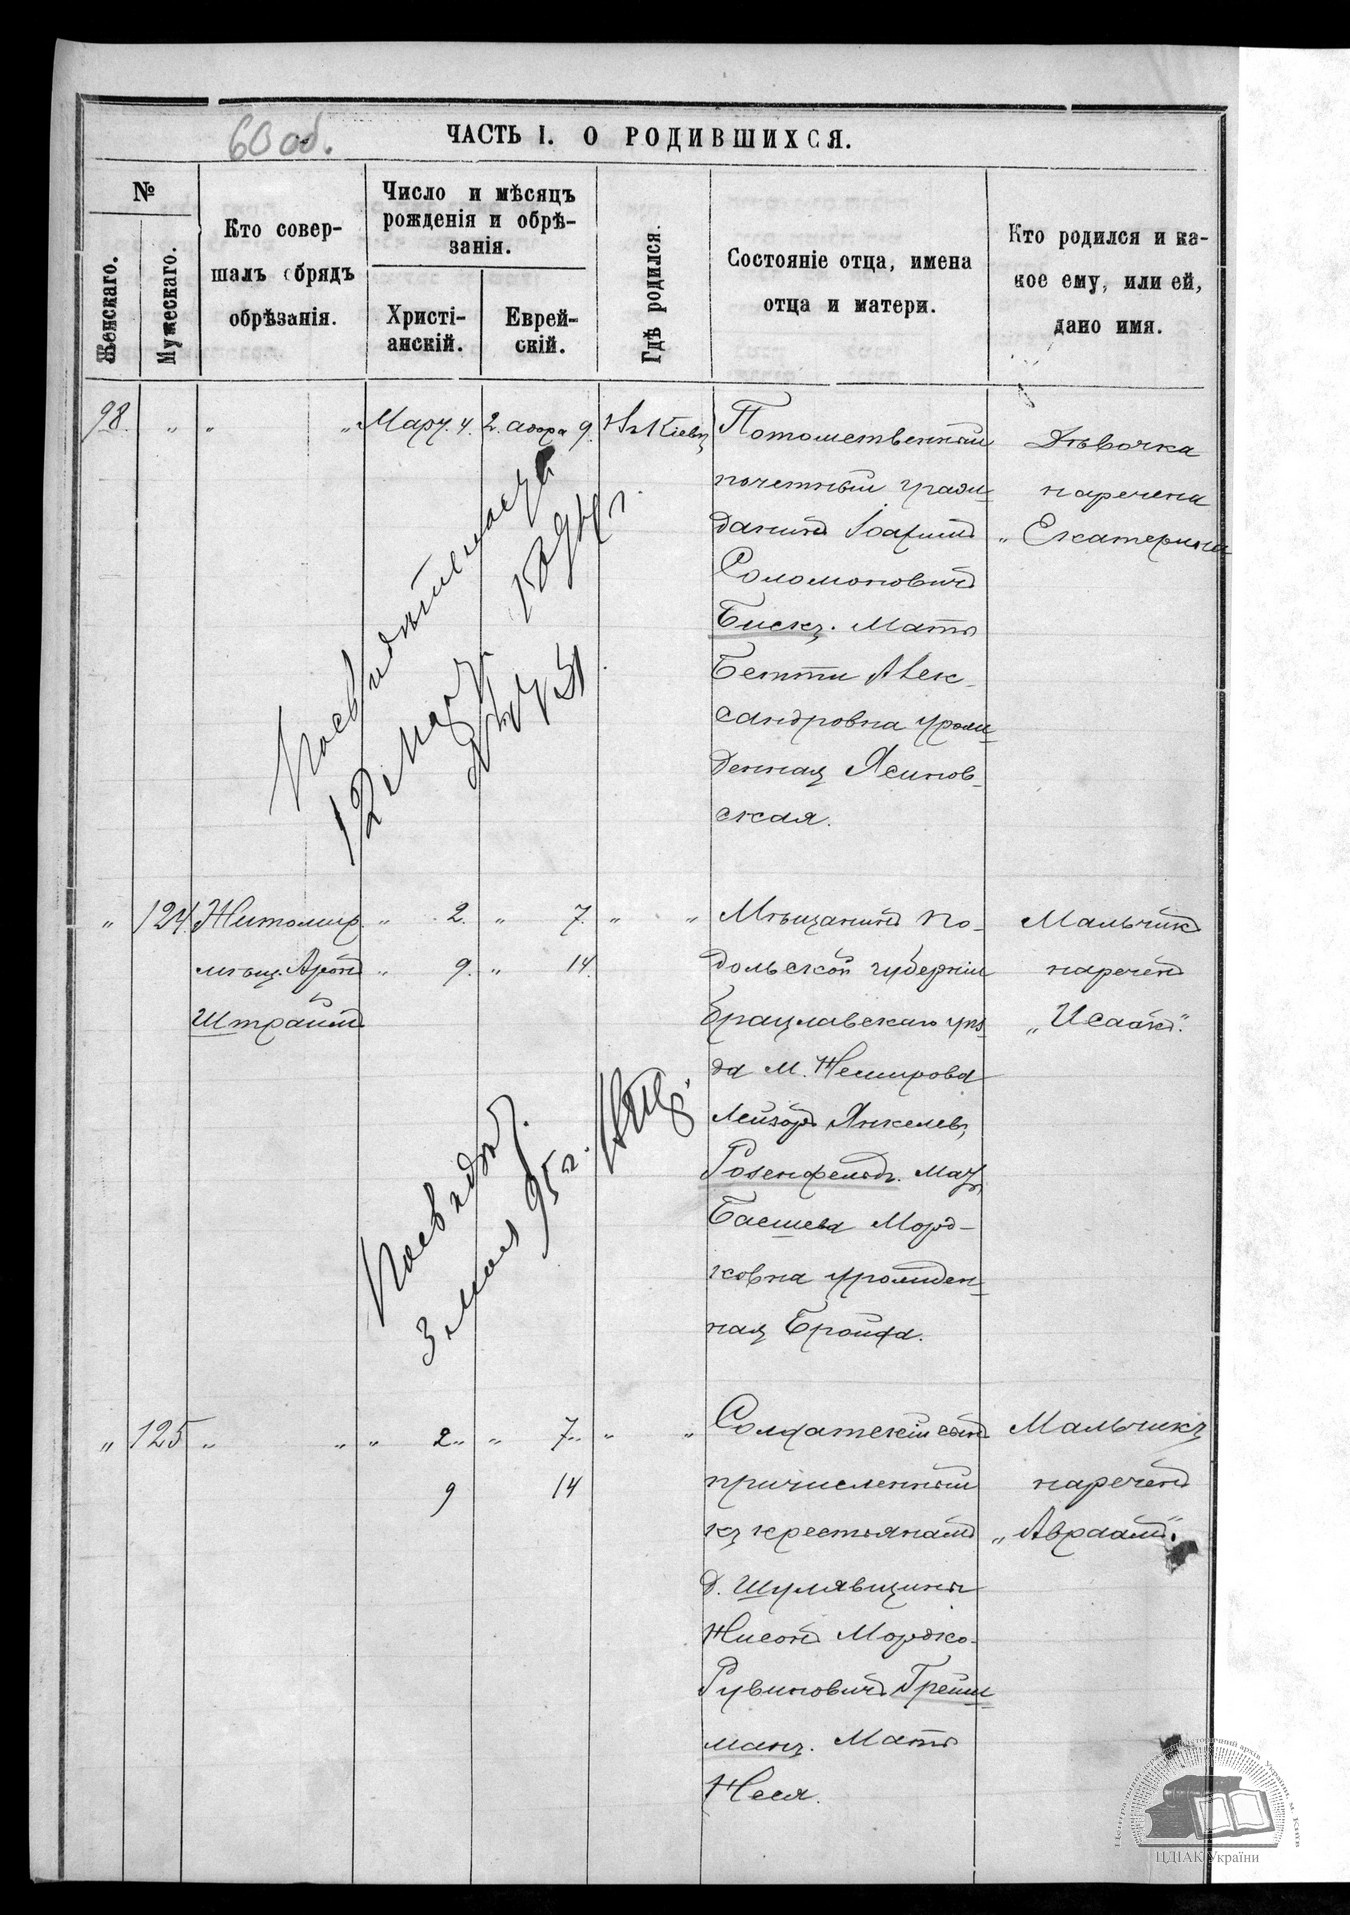 60 об.
ЧАСТЬ I. О РОДИВШИХСЯ.
№
Женскаго.
Мужескаго.
Кто совер-
шалъ обрядъ
обрѣзанія.
Число и мѣсяцъ
рожденія и обрѣ-
занія.
Христі-
анскій.
Еврей-
скій.
Гдѣ родился.
Состояніе отца, имена
отца и матери.
Кто родился и ка-
кое ему, или ей,
дано имя.
98. " " " Март. 4. 2. адара 9. Въ Кіевѣ
Потомственный
почетный граж-
данинъ Іоахимъ
Соломоновичъ
Бискъ. Мать
Бетти Алек-
сандровна урож-
денная Ясинов-
ская.
Дѣвочка
наречена
"Екатерина
12
" 124. Житомир.
мѣщ. Аронъ
Штраймъ
" 2. " 7. " "
" 9. " 14.
Мѣщанинъ По-
дольской губерніи
Брацлавскаго уѣз-
да м. Немирова
Лейзоръ Янкелев.
Розенфельдъ. Мать
Басшева Морд-
ковна урожден-
ная Бройда.
Мальчикъ
нареченъ
"Исаакъ".
3 мая 95 г.
" 125 " " " 2. " 7. " "
9 14
Солдатскій сынъ
причисленный
къ крестьянамъ
д. Шулявщины
Нисонъ Мордко-
Рувиновичъ Грейш-
манъ. Мать
Неся.
Мальчикъ
нареченъ
"Авраамъ".
ЦДІАК України